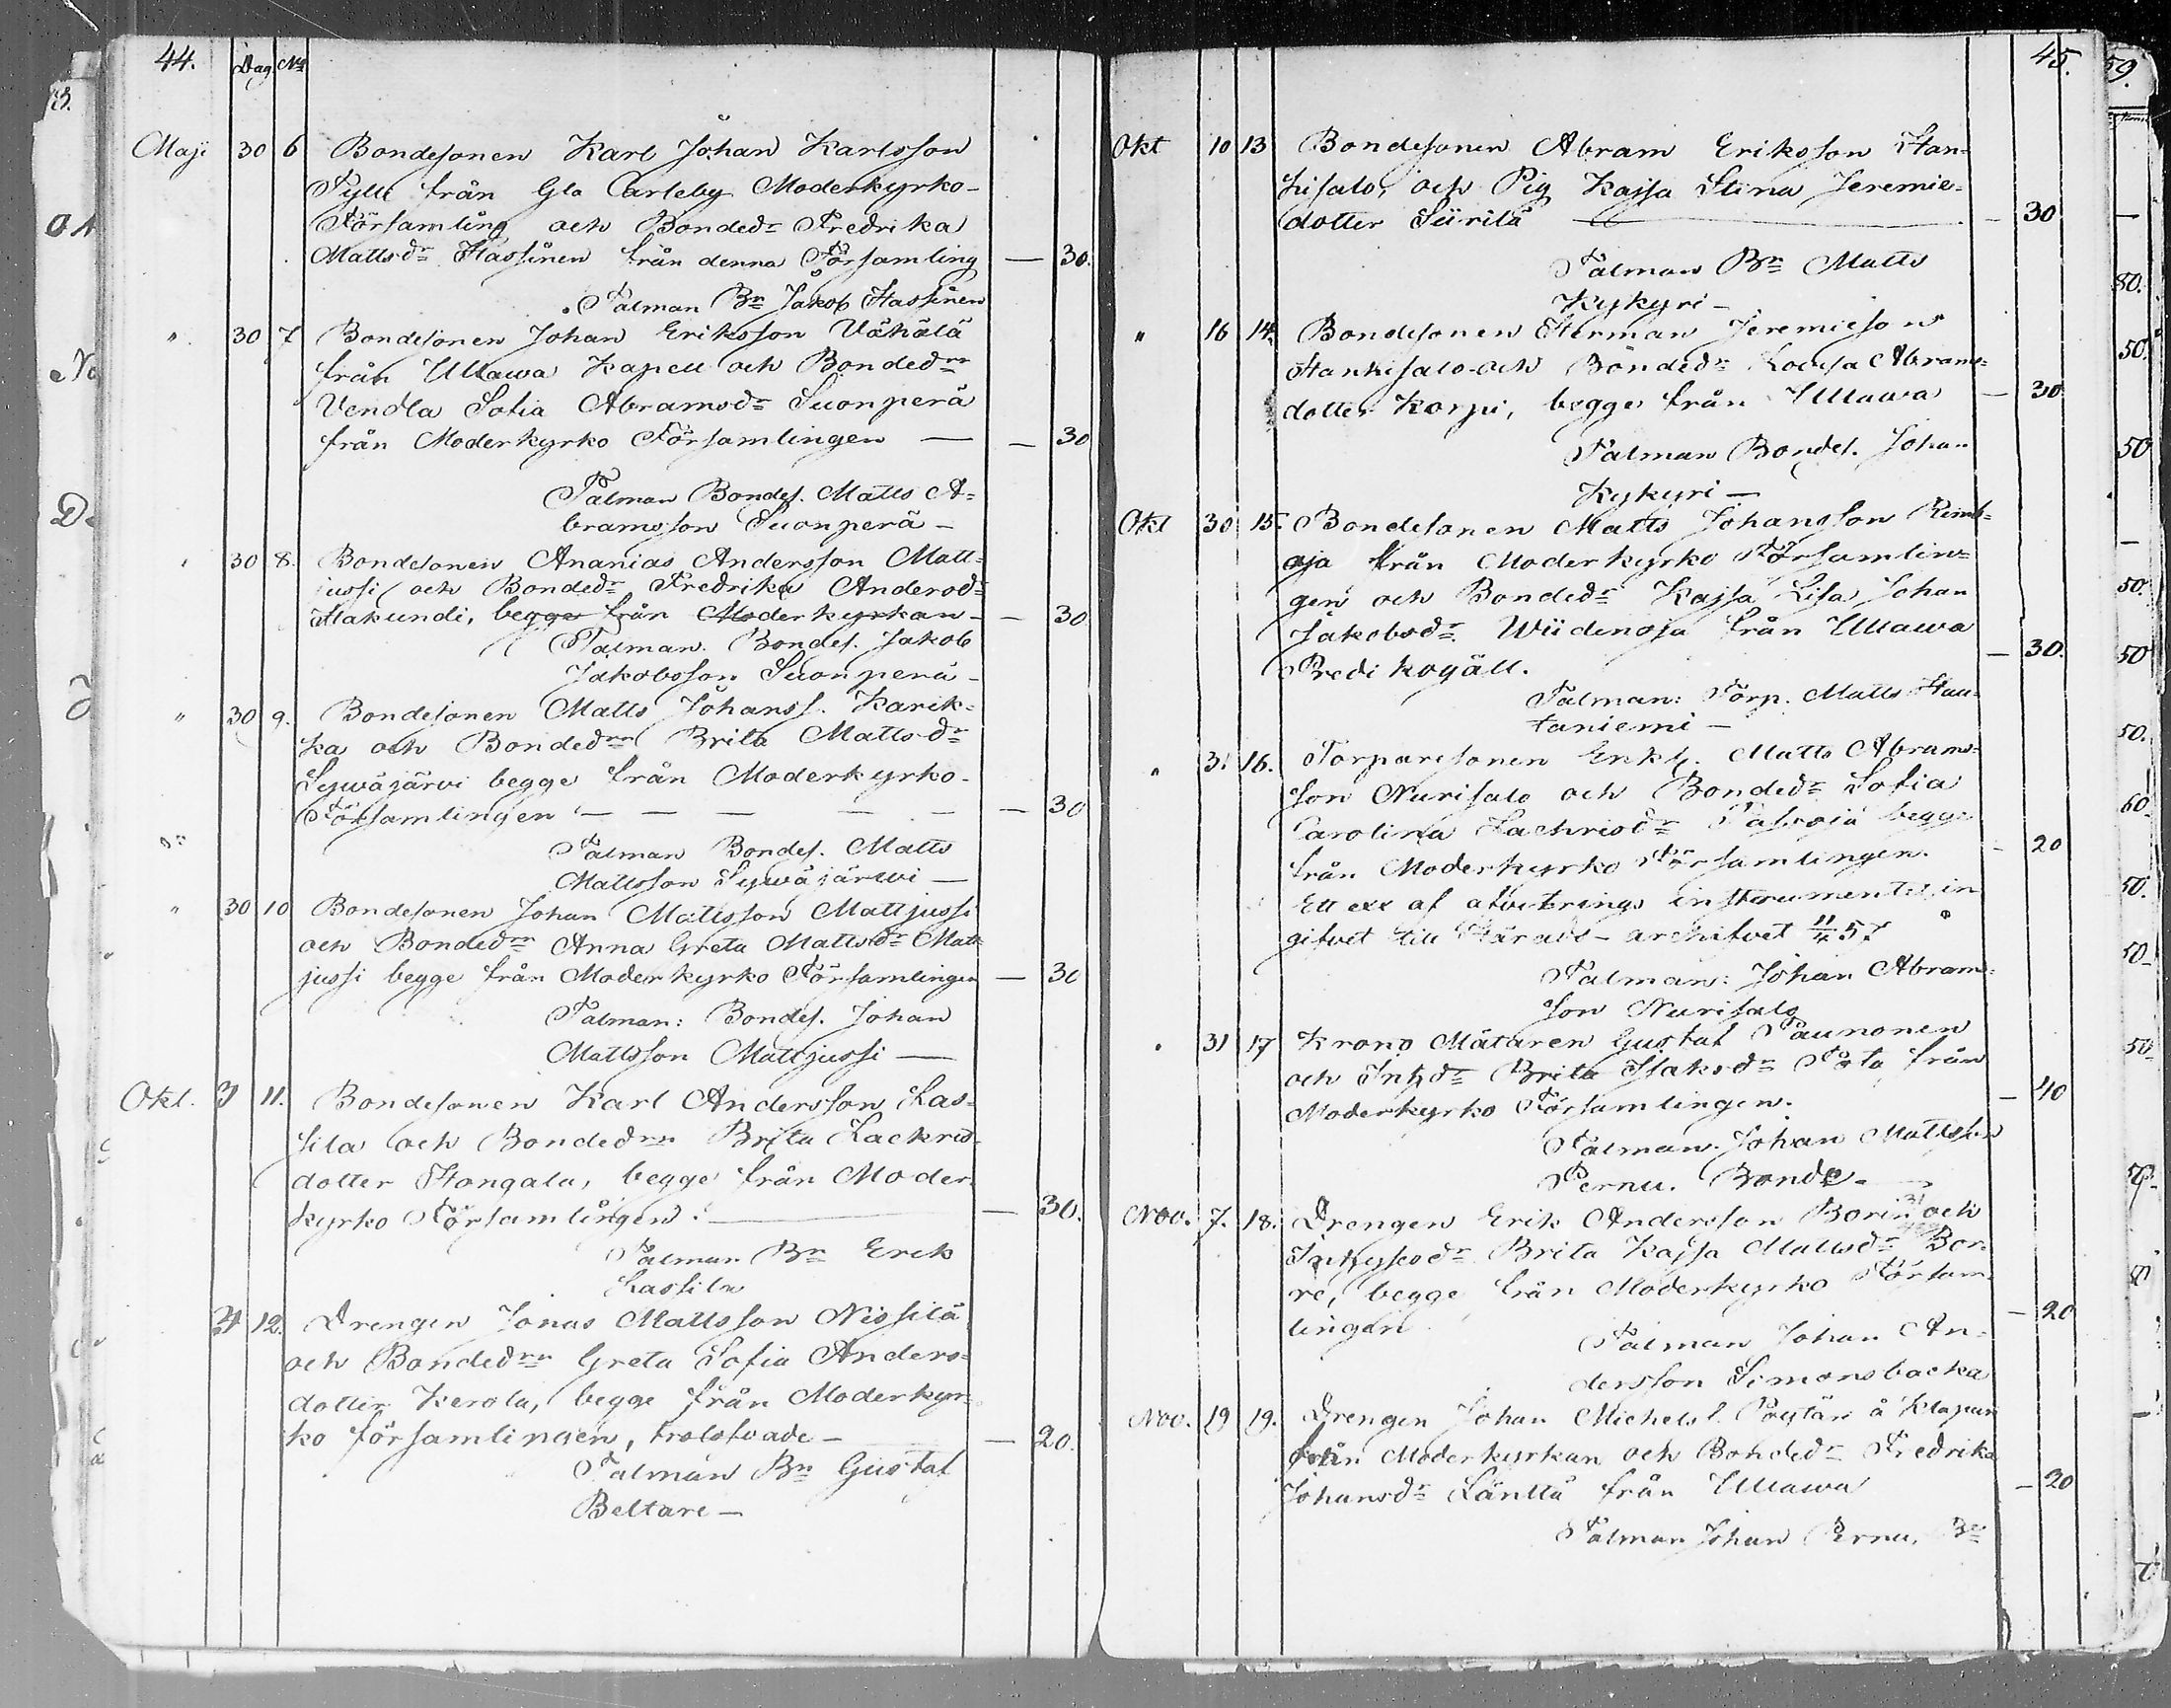 44.
Dag No
Maji 30 6 Bondesonen Karl Johan Karlsson
Fyll från Gla Carleby Moderkyrko-
Församling och Bondedr Fredrika
Mattsdr Hassinen från denna Församling — 30.
Talman Bn Jakob Hassinen
" 30 7 Bondesonen Johan Eriksson Vähälä
från Ullawa Kapell och Bondedrn
Vendla Sofia Abramsdr Suonperä
från Moderkyrko Församlingen — — 30
Talman Bondes. Matts A=
bramsson Suonperä —
" 30 8. Bondesonen Ananias Andersson Matt=
jussi och Bondedr Fredrika Andersdr
Hakundi, begge från Moderkyrkan — — 30
Talman. Bondes. Jakob
Jakobsson Suonperä —
" 30 9. Bondesonen Matts Johanss. Karik=
ka och Bondedrn Brita Mattsdr
Sywäjärvi begge från Moderkyrko-
Församlingen — — — — — — 30
Talman Bondes. Matts
Mattsson Sywäjärwi —
" 30 10 Bondesonen Johan Mattsson Mattjussi
och Bondedrn Anna Greta Mattsdr Matt
jussi begge från Moderkyrko Församlingen — 30
Talman: Bondes. Johan
Mattsson Mattjussi —
Okt. 3 11. Bondesonen Karl Andersson Kas=
sila och Bondedrn Brita Zackris
dotter Hongala, begge från Moder
kyrko Församlingen. — — 30.
Talman Bn Erik
Kassila
31 12. Drengen Jonas Mattsson Nissilä
och Bondedrn Greta Sofia Anders=
dotter Kerola, begge från Moderkyr=
ko församlingen, trolofvade — — 20.
Talman Bn Gustaf
Beltare —
45.
Okt 10 13 Bondesonen Abram Eriksson Han=
kisalo, och Pig Kajsa Stina Jeremie=
dotter Siirilä — — 30
Talman Bn Matts
Kykyri —
" 16 14. Bondesonen Herman Jeremieson
Hankisalo och Bondedr Lovisa Abrams=
dotter Korpi, begge från Ullawa — 30
Talman Bondes. Johan
Kykyri —
Okt 30 15. Bondesonen Matts Johansson
från Moderkyrko Församlin=
gen och Bondedr Kajsa Lisa Johan
Jakobsdr Wiidenoja från Ullawa
Predikogäll. — 30.
Talman: Torp. Matts Hau=
taniemi —
" 31 16. Torparesonen Enkl. Matts Abrams=
son Nurisalo och Bondedr Sofia
Carolina Zachrisdr begge
från Moderkyrko Församlingen. — 20
Ett exx af afvittrings instrumentet in
gifvet till Härads-archifvet 11/4 57
Talman: Johan Abram=
son Nurisalo
" 31 17 Krono Mätaren Gustaf Paunonen
och Inhdr Brita Isaksdr från
Moderkyrko Församlingen. — 40
Talman. Johan Mattsson
Pernu. Bonde —
Nov. 7. 18. Drengen Erik Andersson Borin och
Inhysesdr Brita Kajsa Mattsdr Bor=
re, begge från Moderkyrko Försam=
lingen — 20
Talman Johan An=
dersson Simonsbacka
Nov. 19 19. Drengen Johan Michels. å
från Moderkyrkan och Bondedr Fredrika
Johansdr Länttä från Ullawa — 20
Talman Johan Pernu, Bn
59.